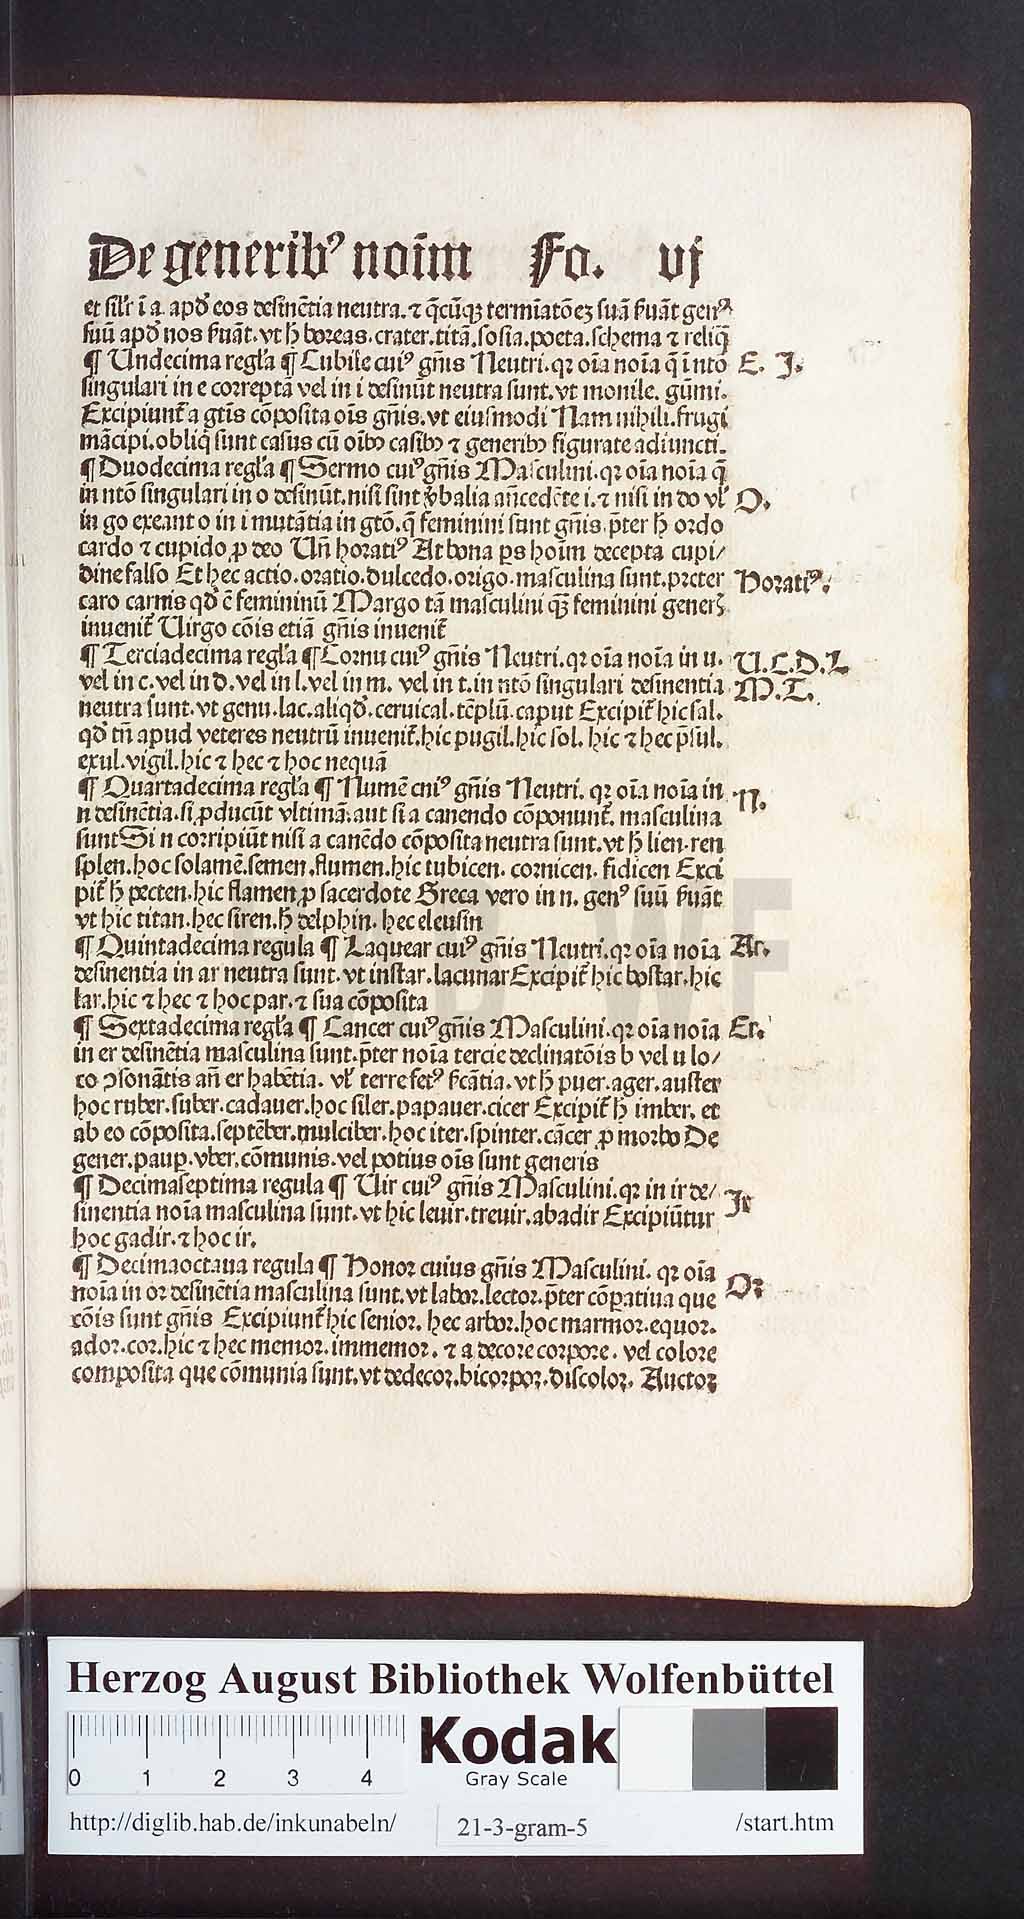 De generibꝰ noīm Fo. vj
et silr̄ ī a. apd̄ eos desinētia neutra. ⁊ q̄cūqꝫ termīatōeꝫ suā ẜuāt genꝰ
suū apd̄ nos ẜuāt. vt h̄ boreas. crater. titā. sosia. poeta. schema ⁊ reliq̄
¶ Undecima regl̄a ¶ Cubile cuiꝰ gn̄is Neutri. qꝛ oīa noīa q̄ ī ntō E. J.
singulari in e correptā vel in i desinūt neutra sunt. vt monile. gūmi.
Excipiunt̄ a gtīs cōposita oīs gn̄is. vt eiusmodi Nam nihili. frugi
mācipi. obliq̄ sunt casus cū oībꝫ casibꝫ ⁊ generibꝫ figurate adiuncti.
¶ Duodecima regl̄a ¶ Sermo cuiꝰ gn̄is Masculini. qꝛ oīa noīa q̄
in ntō singulari in o desinūt. nisi sint v̄balia an̄cedēte i. ⁊ nisi in do vl̄ O.
in go exeant o in i mutātia in gtō. q̄ feminini sunt gn̄is. p̄ter h̄ ordo
cardo ⁊ cupido ꝓ deo Un̄ horatiꝰ At bona ps hoīm decepta cupi/
dine falso Et hec actio. oratio. dulcedo. origo. masculina sunt. preter Horatiꝰ.
caro carnis qd̄ ē femininū Margo tā masculini qꝫ feminini generꝫ
inuenit̄ Uirgo cōis etiā gn̄is inuenit̄
¶ Terciadecima regl̄a ¶ Cornu cuiꝰ gn̄is Neutri. qꝛ oīa noīa in u. U. C. D. L
vel in c. vel in d. vel in l. vel in m. vel in t. in ntō singulari desinentia M. T.
neutra sunt. vt genu. lac. aliqd̄. ceruical. tēplū. caput Excipit̄ hic sal.
qd̄ tn̄ apud veteres neutrū inuenit̄. hic pugil. hic sol. hic ⁊ hec p̄sul.
exul. vigil. hic ⁊ hec ⁊ hoc nequā
¶ Quartadecima regl̄a ¶ Numē cuiꝰ gn̄is Neutri. qꝛ oīa noīa in N.
n desinētia. si ꝓducūt vltimā. aut si a canendo cōponunt̄. masculina
sunt Si n corripiūt nisi a canēdo cōposita neutra sunt. vt h̄ lien. ren
splen. hoc solamē. semen. flumen. hic tubicen. cornicen. fidicen Exci
pit̄ h̄ pecten. hic flamen ꝓ sacerdote Greca vero in n. genꝰ suū ẜuāt
vt hic titan. hec siren. h̄ delphin. hec eleusin
¶ Quintadecima regula ¶ Laquear cuiꝰ gn̄is Neutri. qꝛ oīa noīa Ar.
desinentia in ar neutra sunt. vt instar. lacunar Excipit̄ hic bostar. hic
lar. hic ⁊ hec ⁊ hoc par. ⁊ sua cōposita
¶ Sextadecima regl̄a ¶ Cancer cuiꝰ gn̄is Masculini. qꝛ oīa noīa Er.
in er desinētia masculina sunt. p̄ter noīa tercie declinatōis b vel u lo/
co ꝯsonātis an̄ er habētia. vl̄ terre fetꝰ ẜcātia. vt h̄ puer. ager. auster
hoc ruber. suber. cadauer. hoc siler. papauer. cicer Excipit̄ h̄ imber. et
ab eo cōposita. septēber. mulciber. hoc iter. spinter. cācer ꝓ morbo De
gener. pauꝑ. vber. cōmunis. vel potius oīs sunt generis
¶ Decimaseptima regula ¶ Uir cuiꝰ gn̄is Masculini. qꝛ in ir de/ Ir
sinentia noīa masculina sunt. vt hic leuir. treuir. abadir Excipiūtur
hoc gadir. ⁊ hoc ir.
¶ Decimaoctaua regula ¶ Honor cuius gn̄is Masculini. qꝛ oīa
noīa in or desinētia masculina sunt. vt labor. lector. p̄ter cōꝑatiua que Or
cōis sunt gn̄is Excipiunt̄ hic senior. hec arbor. hoc marmor. equor.
ador. cor. hic ⁊ hec memor. immemor. ⁊ a decore corpore. vel colore
composita que cōmunia sunt. vt dedecor. bicorpor. discolor. Auctor
Herzog August Bibliothek Wolfenbüttel
0 1 2 3 4
Kodak
Gray Scale
http://diglib.hab.de/inkunabeln/ 21-3-gram-5 /start.htm